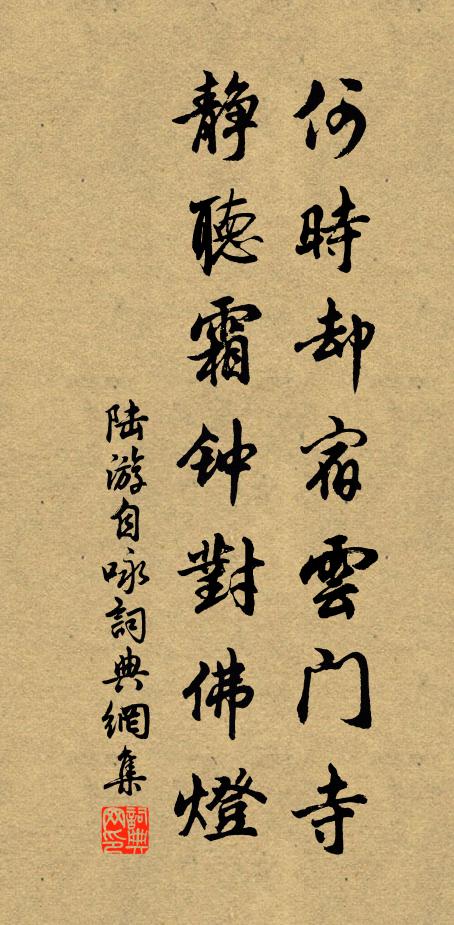 何時却宿雲门寺
静聽霜钟對佛燈
陆游自咏詞典網集
詞典
网印